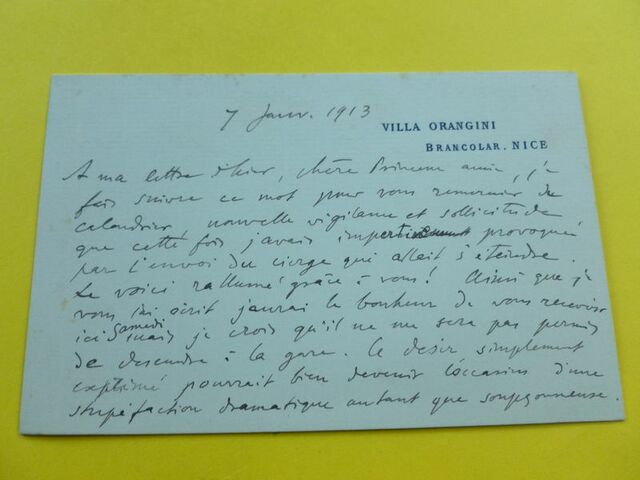 7 Janv. 1913
VILLA ORANGINI
BRANCOLAR. NICE
A ma lettre d'hier, chère Princesse amie, je
fais suivre ce mot pour vous remercier du
calendrier, nouvelle vigilance et sollicitude
que cette fois j'avais impertinemment provoqué
par l'envoi du cierge qui allait s'éteindre.
Le voici rallumé grâce à vous! Ainsi que je
vous l'ai écrit j'aurai le bonheur de vous recevoir
ici Samedi, mais je crois qu'il ne me sera pas permis
de descendre à la gare. Ce désir simplement
exprimé pourrait bien devenir l'occasion d'une
stupéfaction dramatique autant que soupçonneuse.